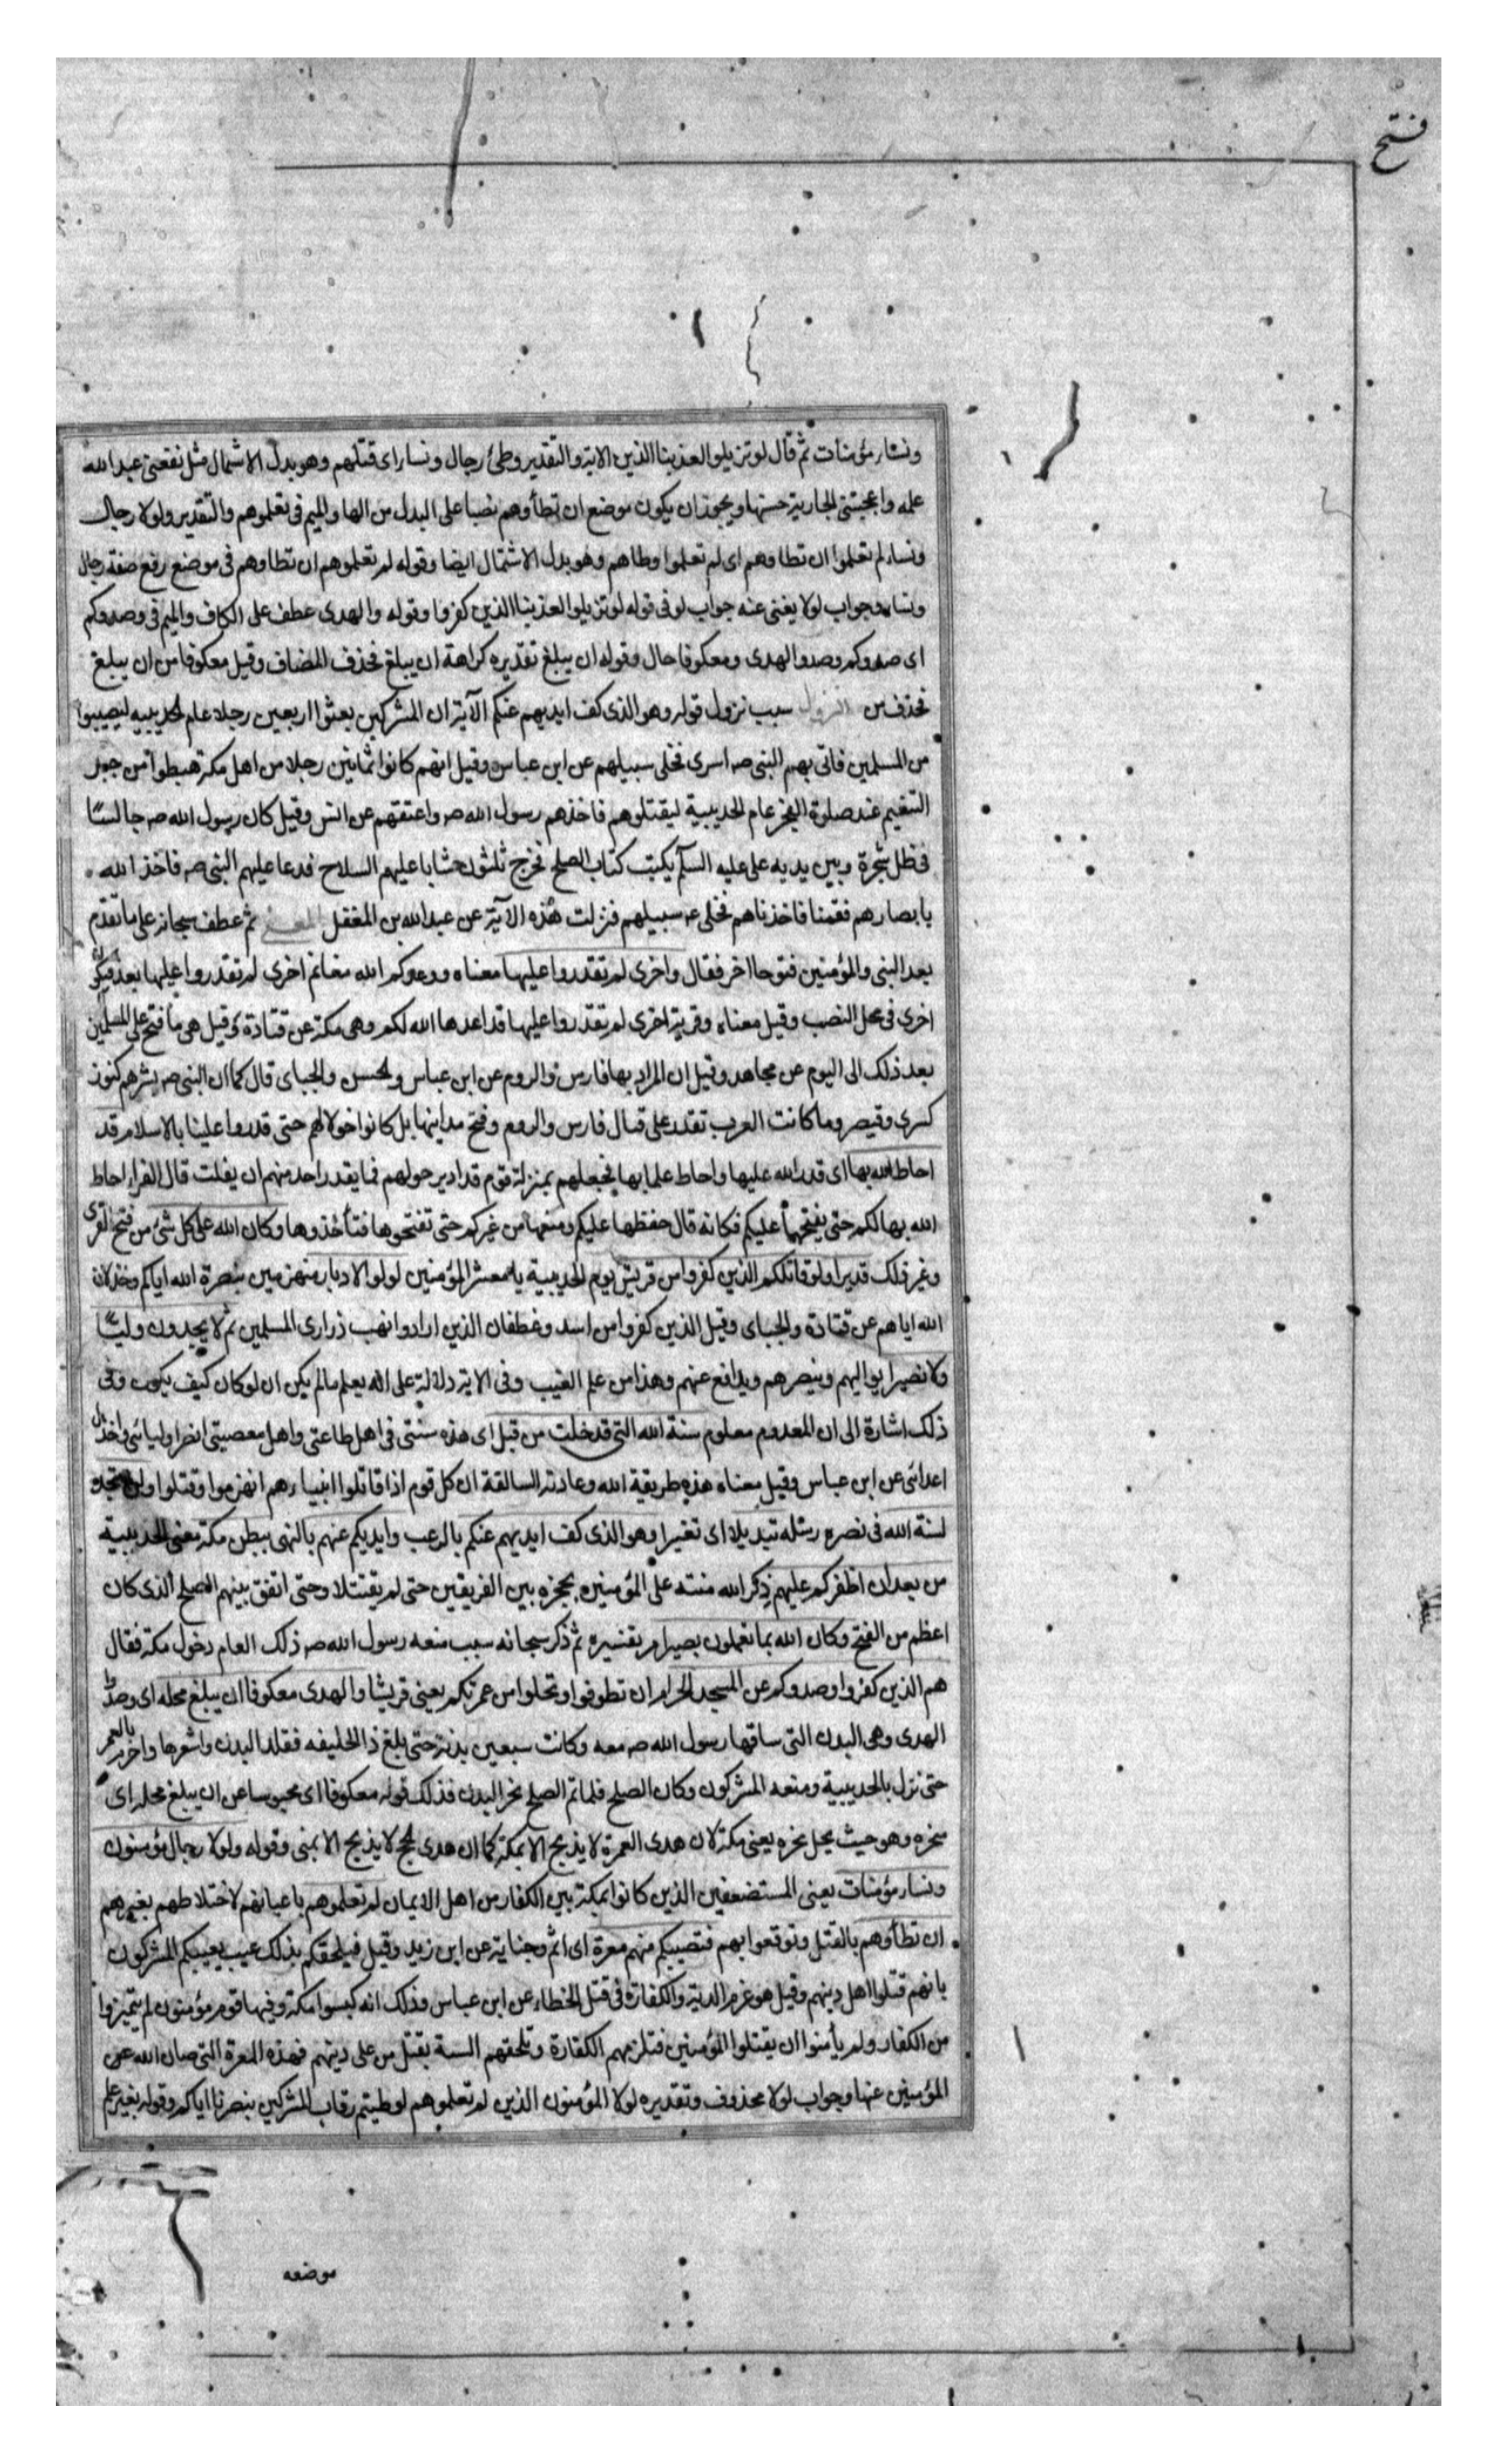 فتح
ونساء مؤمنات ثم قال لو تزيلوا لعذبنا الذين الاية والتقدير وطئ رجال ونساء اى قتلهم وهو بدل الاشتمال مثل نفعنى عبد الله
علمه واعجبتنى الجارية حسنها ويجوز ان يكون موضع ان تطأوهم نصبا على البدل من الها والميم فى تعلموهم والتقدير ولولا رجال
ونساء لم تعلموا ان تطاوهم اى لم تعلموا وطاهم وهو بدل الاشتمال ايضا وقوله لم تعلموهم ان تطاوهم فى موضع رفع صفة رجال
ونساء وجواب لولا يغنى عنه جواب لو فى قوله لو تزيلوا لعذبنا الذين كفروا وقوله والهدى عطف على الكاف والميم فى وصدوكم
اى صدوكم وصدوا الهدى ومعكوفا حال وقوله ان يبلغ تقديره كراهة ان يبلغ فحذف المضاف وقيل معكوفا من ان يبلغ
فحذف من النزول سبب نزول قوله وهو الذى كف ايديهم عنكم الآية ان المشركين بعثوا اربعين رجلا عام الحديبيه ليصيبوا
من المسلمين فاتى بهم النبى صه اسرى فخلى سبيلهم عن ابن عباس وقيل انهم كانوا ثمانين رجلا من اهل مكة هبطوا من جبل
التنعيم عند صلوة الفجر عام الحديبية ليقتلوهم فاخذهم رسول الله صه واعتقهم عن انس وقيل كان رسول الله صه جالسًا
فى ظل شجرة وبين يديه على عليه السلم يكتب كتاب الصلح فخرج ثلثون شابا عليهم السلاح فدعا عليهم النبى صه فاخذ الله
بابصارهم فقمنا فاخذناهم فخلى عه سبيلهم فنزلت هذه الآية عن عبد الله بن المغفل المعنى ثم عطف سبحانه على ما تقدم
بعد النبى والمؤمنين فتوحا اخر فقال واخرى لم تقدروا عليها معناه ووعدكم الله مغانم اخرى لم تقدروا عليها بعد فيكون
اخرى فى محل النصب وقيل معناه وقرية اخرى لم تقدروا عليها قد اعدها الله لكم وهى مكة عن قتادة وقيل هى ما فتح على المسلمين
بعد ذلك الى اليوم عن مجاهد وقيل ان المراد بها فارس والروم عن ابن عباس والحسن والجباى قال كما ان النبى صه بشرهم كنوز
كسرى وقيصر وما كانت العرب تقدر على قتال فارس والروم وفتح مداينها بل كانوا خولا لهم حتى قدروا علينا بالاسلام قد
احاط الله بها اى قدر الله عليها واحاط علما بها فجعلهم بمنزلة قوم قد ادير حولهم فما يقدر احد منهم ان يفلت قال الفراء احاط
الله بها لكم حتى يفتحها عليكم فكانه قال حفظها عليكم ومنعها من غيركم حتى تفتحوها فتأخذوها وكان الله على كل شئ من فتح القرى
وغير ذلك قديرا ولو قاتلكم الذين كفروا من قريش يوم الحديبية يا معشر المؤمنين لولوا الادبار منهزمين بنصرة الله اياكم وخذلان
الله اياهم عن قتادة والجباى وقيل الذين كفروا من اسد وغطفان الذين ارادوا نهب ذرارى المسلمين ثم لا يجدون وليًا
ولا نصيرا يواليهم وينصرهم ويدافع عنهم وهذا من علم الغيب وفى الاية دلالة على الله يعلم ما لم يكن ان لو كان كيف يكون وفى
ذلك اشارة الى ان المعدوم معلوم سنة الله التى قد خلت من قبل اى هذه سنتى فى اهل طاعتى واهل معصيتى انصر اوليائى واخذل
اعدائى عن ابن عباس وقيل معناه هذه طريقة الله وعادته السالفة ان كل قوم اذا قاتلوا انبياءهم انهزموا وقتلوا ولن تجد
لسنة الله فى نصره رسله تبديلا اى تغيرا وهو الذى كف ايديهم عنكم بالرعب وايديكم عنهم بالنهى ببطن مكة معنى الحديبية
من بعد ان اظفركم عليهم ذكر الله منته على المؤمنين بحجزه بين الفريقين حتى لم يقتتلا وحتى اتفق بينهم الصلح الذى كان
اعظم من الفتح وكان الله بما تعملون بصيرا مر تفسيره ثم ذكر سبحانه سبب منعه رسول الله صه ذلك العام دخول مكة فقال
هم الذين كفروا وصدوكم عن المسجد الحرام ان تطوفوا وتحلوا من عمرتكم يعنى قريشا والهدى معكوفا ان يبلغ محله اى وصدوا
الهدى وهى البدن التى ساقها رسول الله صه معه وكانت سبعين بدنة حتى بلغ ذا الحليفه فقلد البدن واشعرها واحرم بالعمرة
حتى نزل بالحديبية ومنعه المشركون وكان الصلح فلما تم الصلح نحر البدن فذلك قوله معكوفا اى محبوسا عن ان يبلغ محله اى
منحره وهو حيث يحل نحره يعنى مكة لان هدى العمرة لا يذبح الا بمكة كما ان هدى الحج لا يذبح الا بمنى وقوله ولولا رجال مؤمنون
ونساء مؤمنات يعنى المستضعفين الذين كانوا بمكة بين الكفار من اهل الايمان لم تعلموهم باعيانهم لاختلاطهم بغيرهم
ان تطأوهم بالقتل وتوقعوا بهم فتصيبكم منهم معرة اى اثم وجناية عن ابن زيد وقيل فيلحقكم بذلك عيب يعيبكم المشركون
بانهم قتلوا اهل دينهم وقيل هو غرم الدية والكفارة فى قتل الخطاء عن ابن عباس وذلك انه كبسوا مكة وفيها قوم مؤمنون لم يتميزوا
من الكفار ولم يأمنوا ان يقتلوا المؤمنين فتلزمهم الكفارة وتلحقهم السبة بقتل من على دينهم فهذه المعرة التى صان الله عن
المؤمنين عنها وجواب لولا محذوف وتقديره لولا المؤمنون الذين لم تعلموهم لوطيتم رقاب المشركين بنصرنا اياكم وقوله بغير علم
موضعه